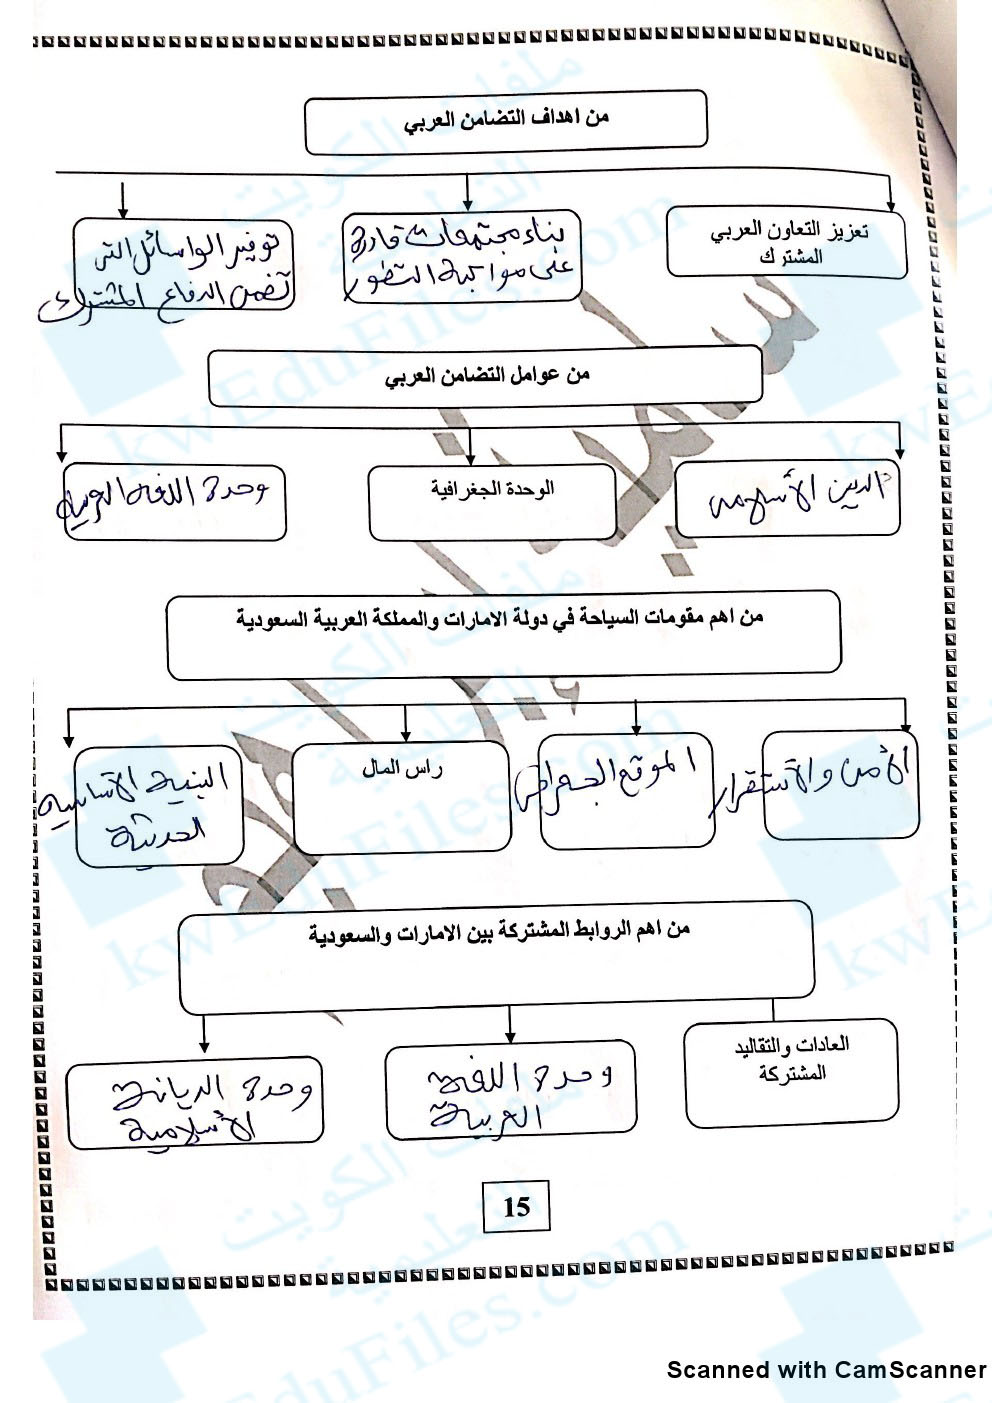 من اهداف التضامن العربي
تعزيز التعاون العربي
المشترك
بناء مجتمعات قادرة
على مواكبة التطور
توفير الوسائل التي
تضمن الدفاع المشترك
من عوامل التضامن العربي
الدين الأسلامي
الوحدة الجغرافية
وحدة اللغة العربية
من اهم مقومات السياحة في دولة الامارات والمملكة العربية السعودية
الأمن والأستقرار
الموقع الجغرافي
راس المال
البنية الأساسية
الحديثة
من اهم الروابط المشتركة بين الامارات والسعودية
العادات والتقاليد
المشتركة
وحدة اللغة
العربية
وحدة الديانة
الأسلامية
15
ملفات الكويت
التعليمية
kwEduFiles.com
Scanned with CamScanner